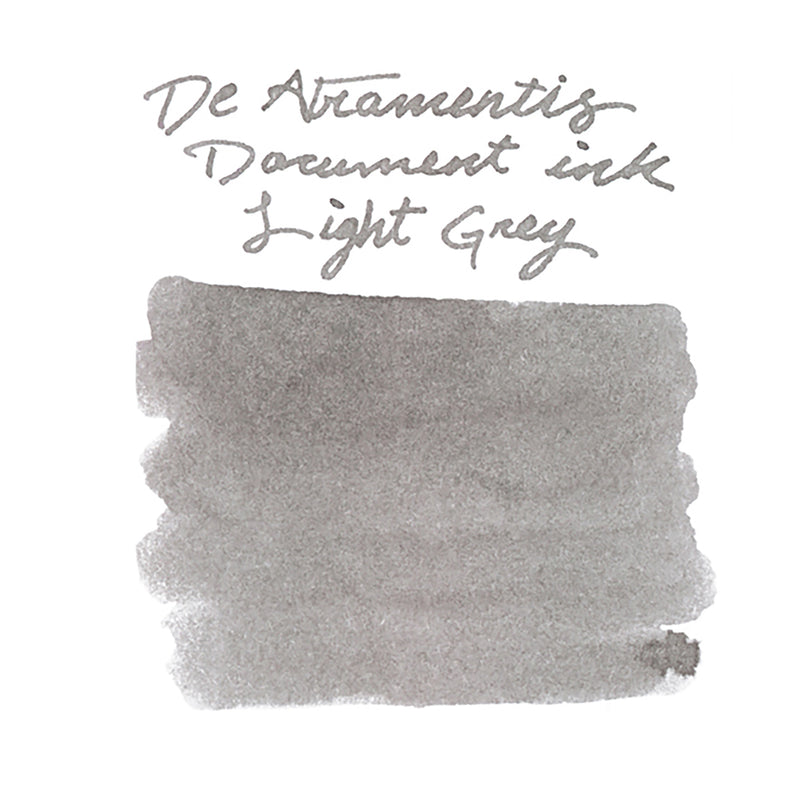 De Atramentis
Document ink
Light Grey